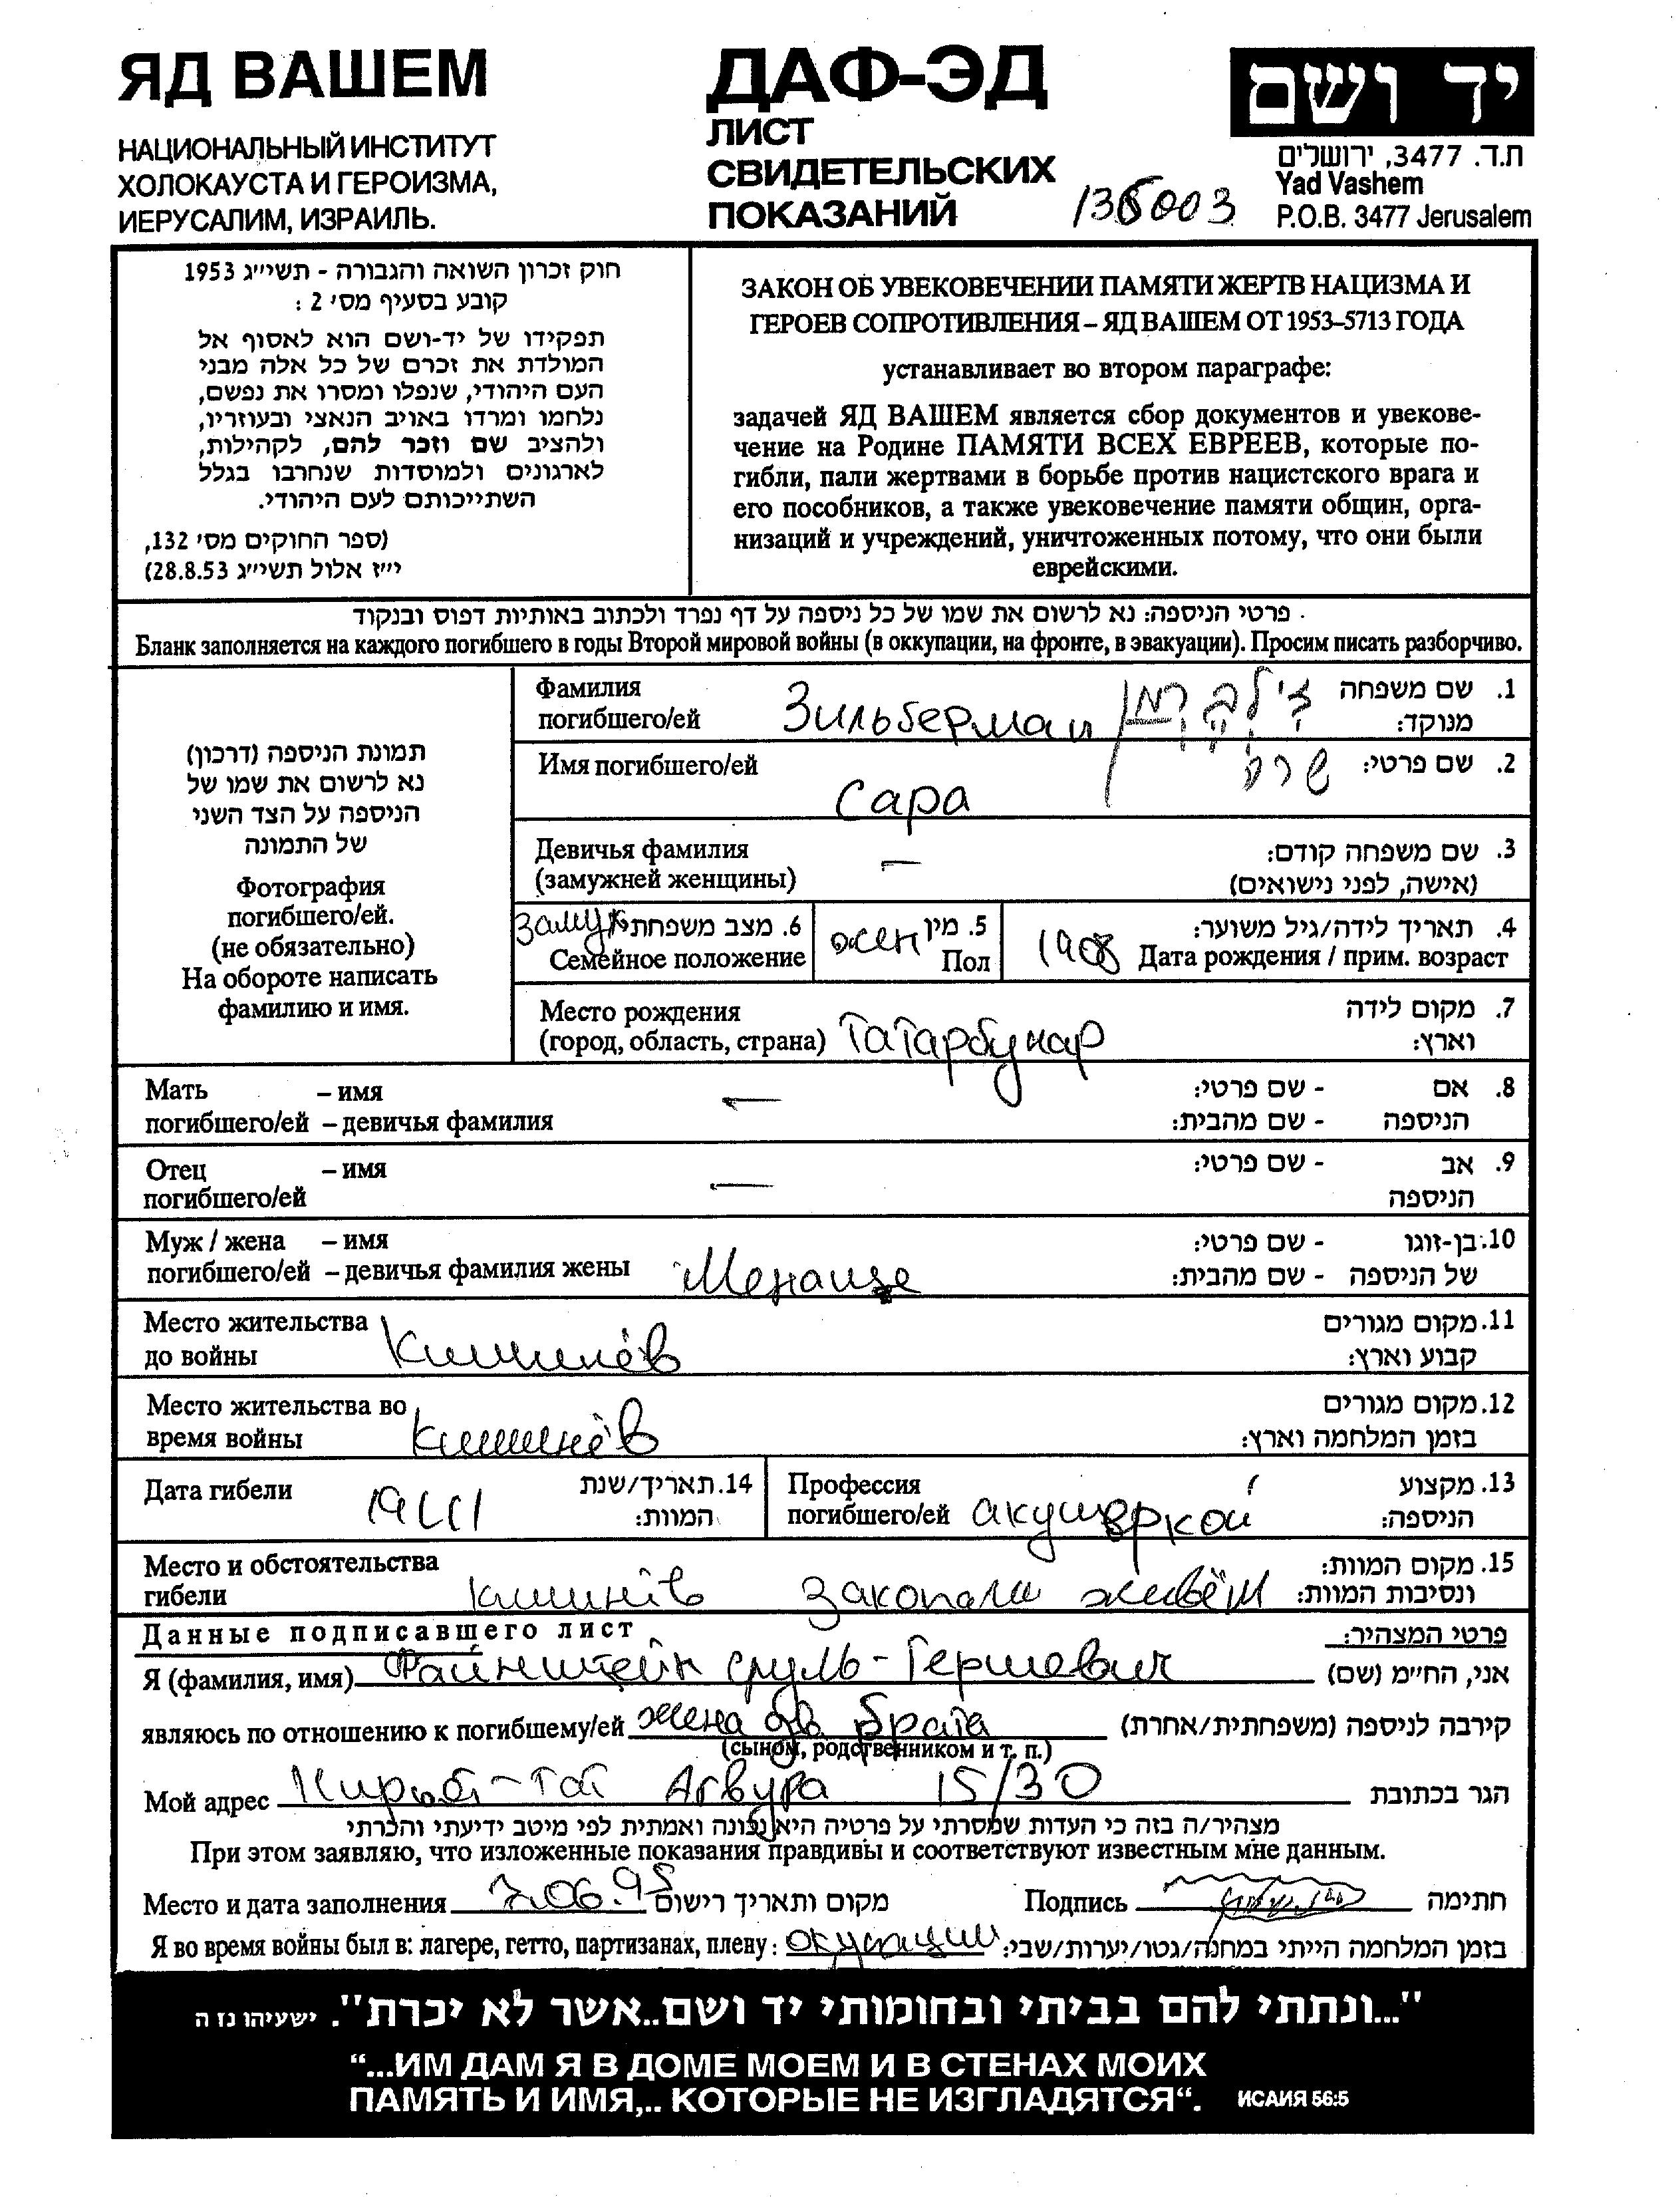 ЯД ВАШЕМ
НАЦИОНАЛЬНЫЙ ИНСТИТУТ
ХОЛОКАУСТА И ГЕРОИЗМА,
ИЕРУСАЛИМ, ИЗРАИЛЬ.
ДАФ-ЭД
ЛИСТ
СВИДЕТЕЛЬСКИХ
ПОКАЗАНИЙ
יד ושם
ת.ד. 3477, ירושלים
Yad Vashem
P.O.B. 3477 Jerusalem
חוק זכרון השואה והגבורה - תשי״ג 1953
קובע בסעיף מס׳ 2 :
תפקידו של יד-ושם הוא לאסוף אל
המולדת את זכרם של כל אלה מבני
העם היהודי, שנפלו ומסרו את נפשם,
נלחמו ומרדו באויב הנאצי ובעוזריו,
ולהציב שם וזכר להם, לקהילות,
לארגונים ולמוסדות שנחרבו בגלל
השתייכותם לעם היהודי.
(ספר החוקים מס׳ 132,
י״ז אלול תשי״ג 28.8.53)
ЗАКОН ОБ УВЕКОВЕЧЕНИИ ПАМЯТИ ЖЕРТВ НАЦИЗМА И
ГЕРОЕВ СОПРОТИВЛЕНИЯ – ЯД ВАШЕМ ОТ 1953–5713 ГОДА
устанавливает во втором параграфе:
задачей ЯД ВАШЕМ является сбор документов и увекове-
чение на Родине ПАМЯТИ ВСЕХ ЕВРЕЕВ, которые по-
гибли, пали жертвами в борьбе против нацистского врага и
его пособников, а также увековечение памяти общин, орга-
низаций и учреждений, уничтоженных потому, что они были
еврейскими.
פרטי הניספה: נא לרשום את שמו של כל ניספה על דף נפרד ולכתוב באותיות דפוס ובנקוד .
Бланк заполняется на каждого погибшего в годы Второй мировой войны (в оккупации, на фронте, в эвакуации). Просим писать разборчиво.
תמונת הניספה (דרכון)
נא לרשום את שמו של
הניספה על הצד השני
של התמונה
Фотография
погибшего/ей.
(не обязательно)
На обороте написать
фамилию и имя.
Фамилия זילברמן 1. שם משפחה
погибшего/ей Зильберман מנוקד:
Имя погибшего/ей שרה 2. שם פרטי:
Сара
Девичья фамилия — 3. שם משפחה קודם:
(замужней женщины) (אישה, לפני נישואים)
замуж 6. מצב משפחתי
Семейное положение
жен 5. מין
Пол
4. תאריך לידה/גיל משוער:
1908 Дата рождения / прим. возраст
Место рождения 7. מקום לידה
(город, область, страна) Татарбунар וארץ:
Мать – имя — - שם פרטי: 8. אם
погибшего/ей – девичья фамилия - שם מהבית: הניספה
Отец – имя — - שם פרטי: 9. אב
погибшего/ей הניספה
Муж / жена – имя - שם פרטי: 10. בן-זוגו
погибшего/ей – девичья фамилия жены Менаше - שם מהבית: של הניספה
Место жительства 11. מקום מגורים
до войны Кишинёв קבוע וארץ:
Место жительства во 12. מקום מגורים
время войны Кишинёв בזמן המלחמה וארץ:
Дата гибели 1941 14. תאריך/שנת
המוות:
Профессия 13. מקצוע
погибшего/ей акушеркой הניספה:
Место и обстоятельства 15. מקום המוות:
гибели Кишинёв Закопали живьём ונסיבות המוות:
Данные подписавшего лист פרטי המצהיר:
Я (фамилия, имя) Файнштейн Сруль-Гершевич אני, הח״מ (שם)
являюсь по отношению к погибшему/ей жена дв. брата קירבה לניספה (משפחתית/אחרת)
(сыном, родственником и т. п.)
Мой адрес Кирьят-Гат Агвура 15/30 הגר בכתובת
מצהיר/ה בזה כי העדות שמסרתי על פרטיה היא נכונה ואמתית לפי מיטב ידיעתי והכרתי
При этом заявляю, что изложенные показания правдивы и соответствуют известным мне данным.
Место и дата заполнения 7.06.95 מקום ותאריך רישום Подпись חתימה
Я во время войны был в: лагере, гетто, партизанах, плену: окупации בזמן המלחמה הייתי במחנה/גטו/יערות/שבי:
"...ונתתי להם בביתי ובחומותי יד ושם..אשר לא יכרת". ישעיהו נז ה
“...ИМ ДАМ Я В ДОМЕ МОЕМ И В СТЕНАХ МОИХ
ПАМЯТЬ И ИМЯ,.. КОТОРЫЕ НЕ ИЗГЛАДЯТСЯ“. ИСАИЯ 56:5